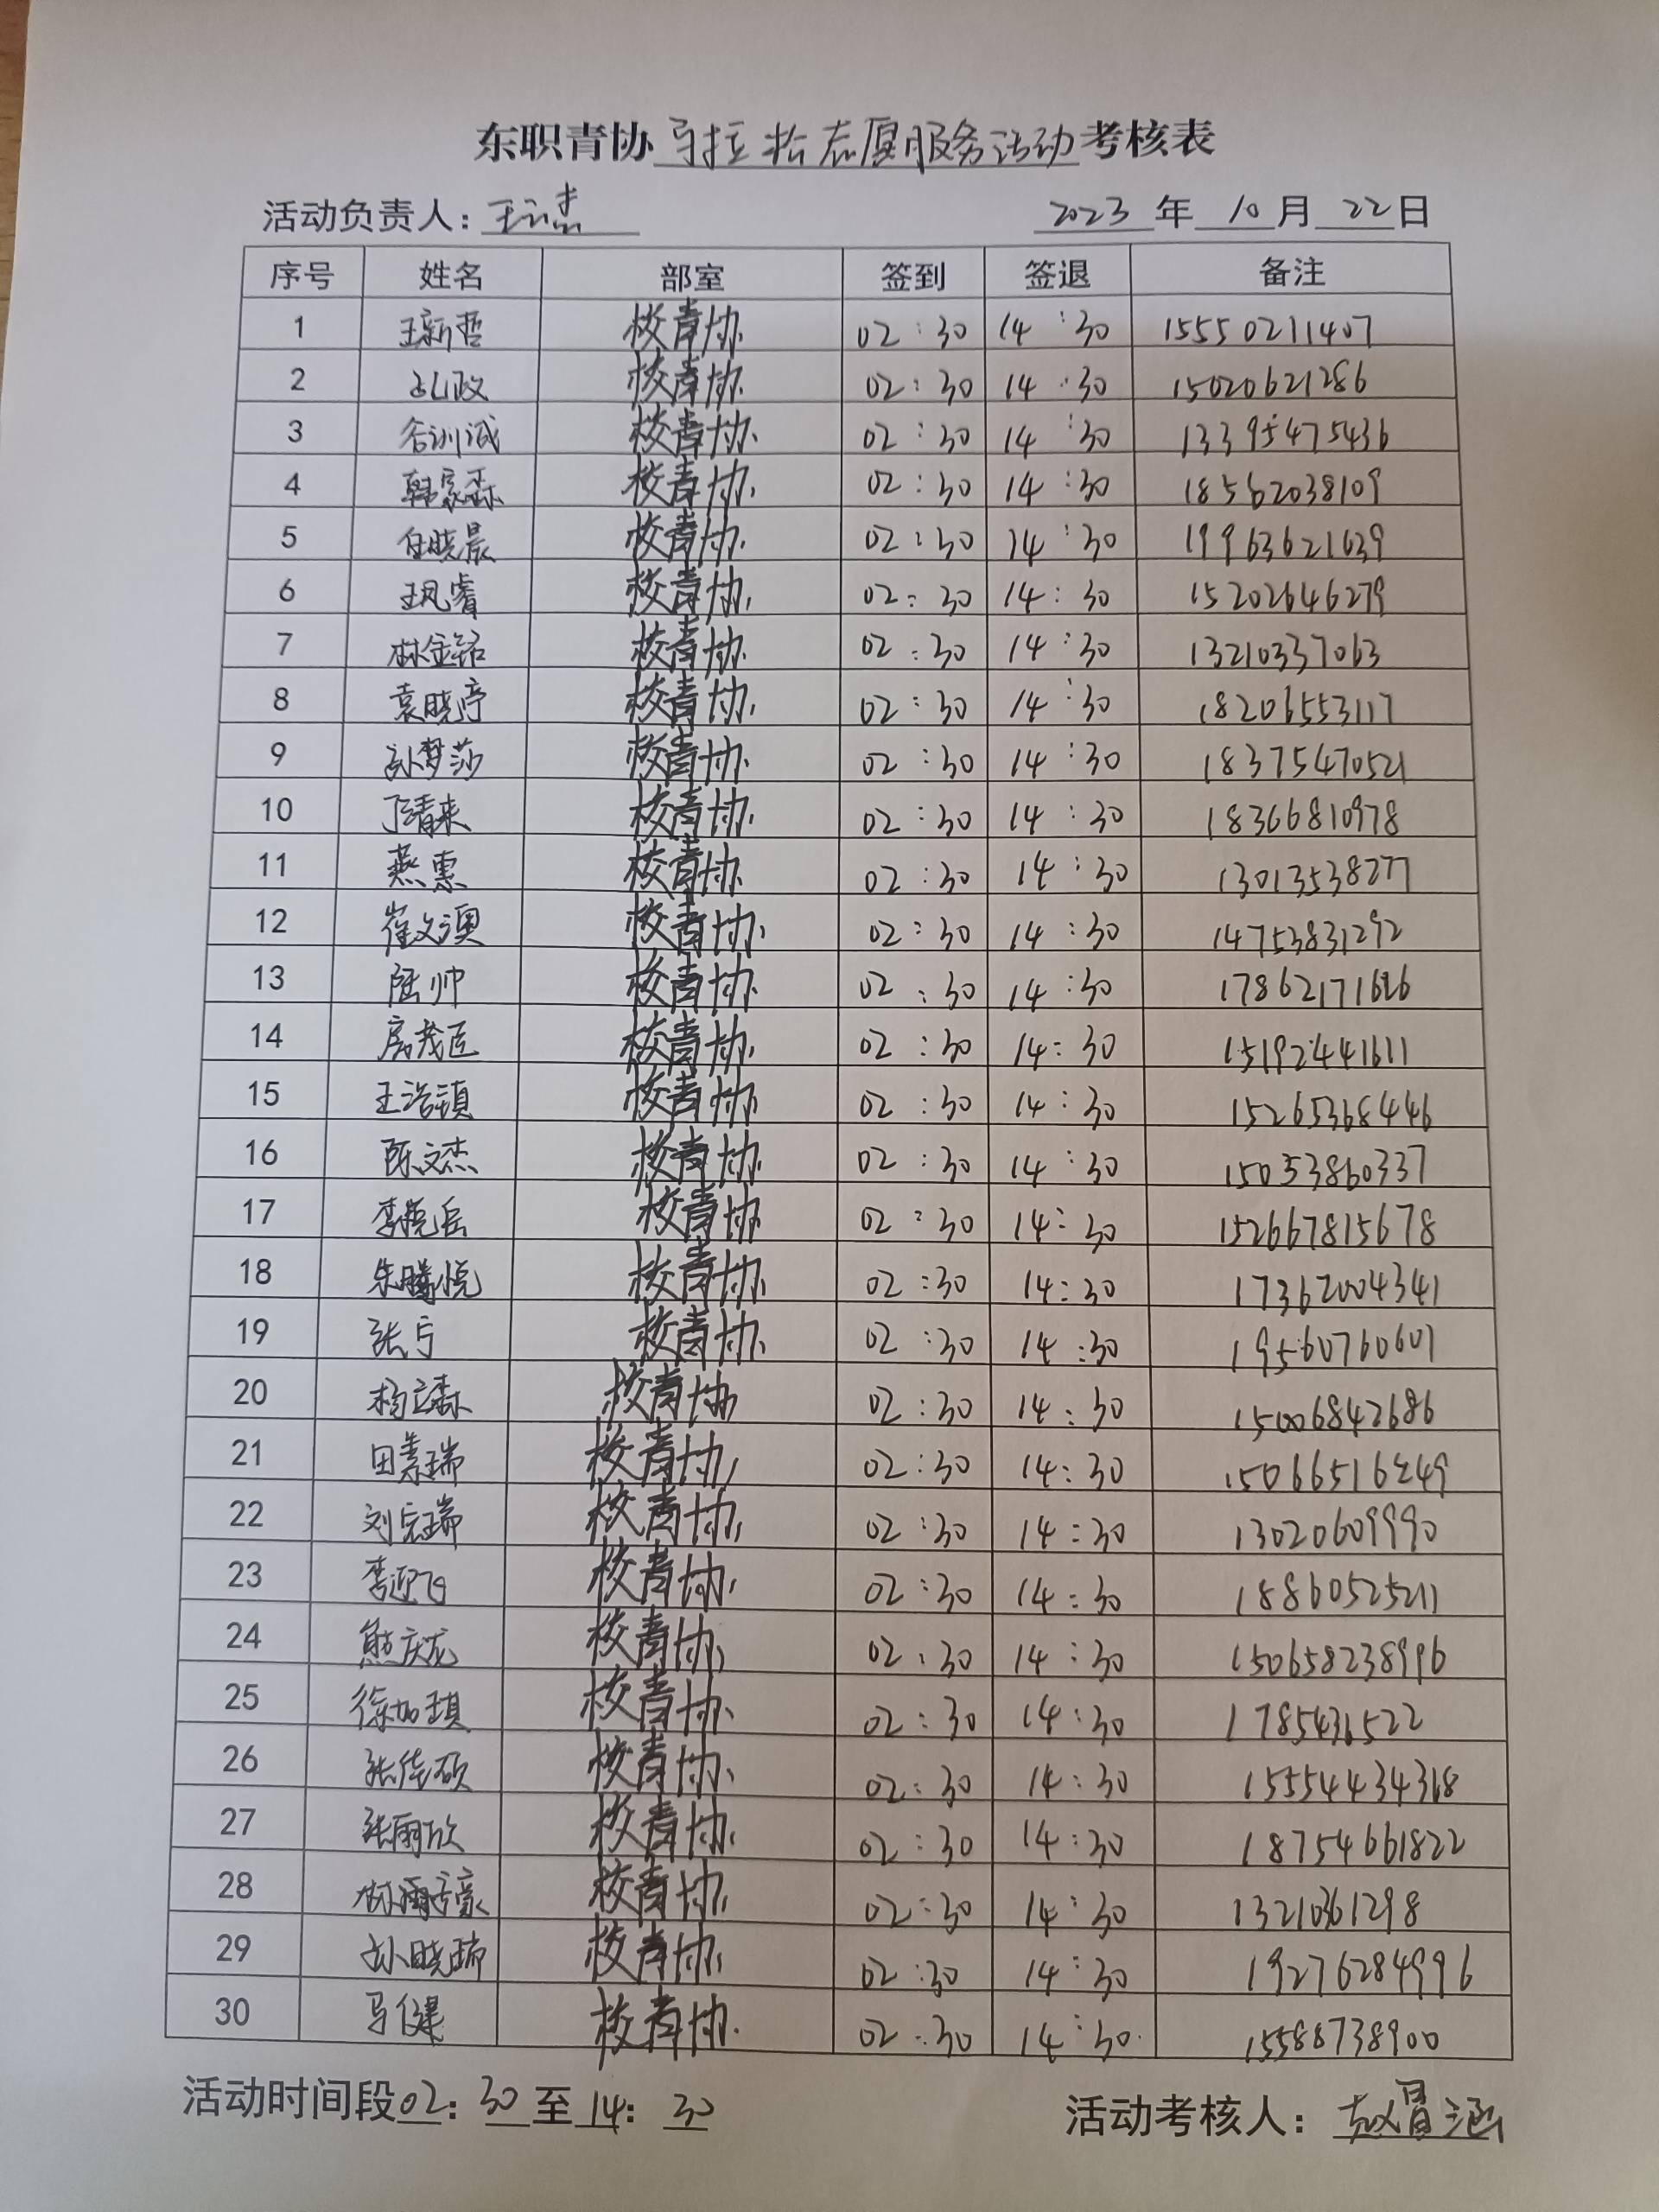 东职青协马拉松志愿服务活动考核表
活动负责人: 2023年10月22日
序号 姓名 部室 签到 签退 备注
1 王新哲 校青协 02:30 14:30 15550211407
2 孔政 校青协 02:30 14:30 15020621286
3 谷训诚 校青协 02:30 14:30 13395475436
4 韩家森 校青协 02:30 14:30 18562038109
5 任晓晨 校青协 02:30 14:30 19963621639
6 王凤睿 校青协 02:30 14:30 15202646279
7 林金铭 校青协 02:30 14:30 13210337063
8 袁晓亭 校青协 02:30 14:30 18206553117
9 孙梦莎 校青协 02:30 14:30 18375470521
10 丁清来 校青协 02:30 14:30 18366810978
11 燕惠 校青协 02:30 14:30 13013538277
12 崔文澳 校青协 02:30 14:30 14753831292
13 陆帅 校青协 02:30 14:30 17862171626
14 房茂匠 校青协 02:30 14:30 15192441611
15 王浩镇 校青协 02:30 14:30 15265368446
16 陈文杰 校青协 02:30 14:30 15053860337
17 校青协 02:30 14:30 152667815678
18 朱腾悦 校青协 02:30 14:30 17362004341
19 张宁 校青协 02:30 14:30 19560760607
20 杨立森 校青协 02:30 14:30 15006842686
21 田素瑞 校青协 02:30 14:30 15066516249
22 刘宏瑞 校青协 02:30 14:30 13020609990
23 李迎飞 校青协 02:30 14:30 18860525211
24 熊庆龙 校青协 02:30 14:30 150658238996
25 徐加琪 校青协 02:30 14:30 1785436522
26 张佳硕 校青协 02:30 14:30 15554434318
27 张雨欣 校青协 02:30 14:30 18754661822
28 校青协 02:30 14:30 13210361298
29 孙晓瑞 校青协 02:30 14:30 19276284996
30 马健 校青协 02:30 14:30 15588738900
活动时间段02:30至14:30 活动考核人:赵冒涵